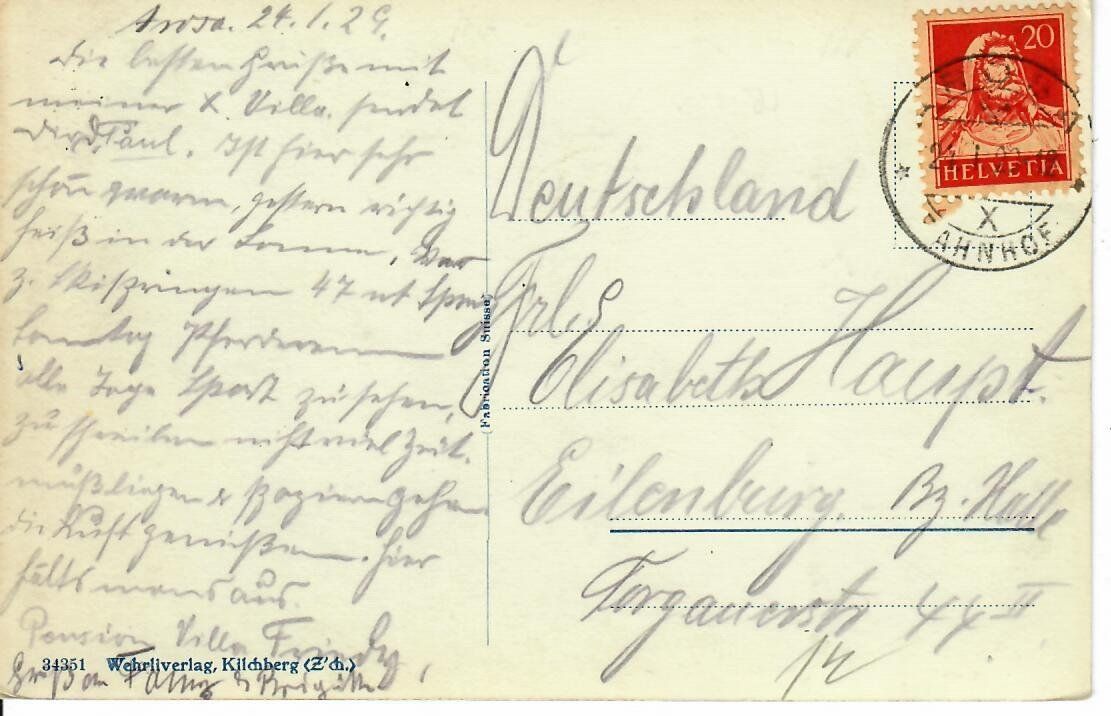 Arosa. 24.1.29.
Die besten Grüße mit
meiner X Villa. sendet
Dir D. Paul. Ist hier sehr
schön warm, gestern richtig
heiß in der Sonne. War
z. Skispringen 47 mt Spru
Sonntag Pferderennen
alle Tage Sport zu sehen,
zu schreiben nicht viel Zeit.
muß liegen & spazieren gehen
die Luft genießen. Hier
hälts mans aus.
Pension Villa Friedy
Gruß an & Brigitte
34351 Wehrliverlag, Kilchberg (Z'ch.)
(Fabrication Suisse)
20
HELVETIA
24. I.
X
BAHNHOF
Deutschland
Frl.
Elisabeth Haupt.
Eilenburg. Bz. Halle
Torgauerstr 44 II